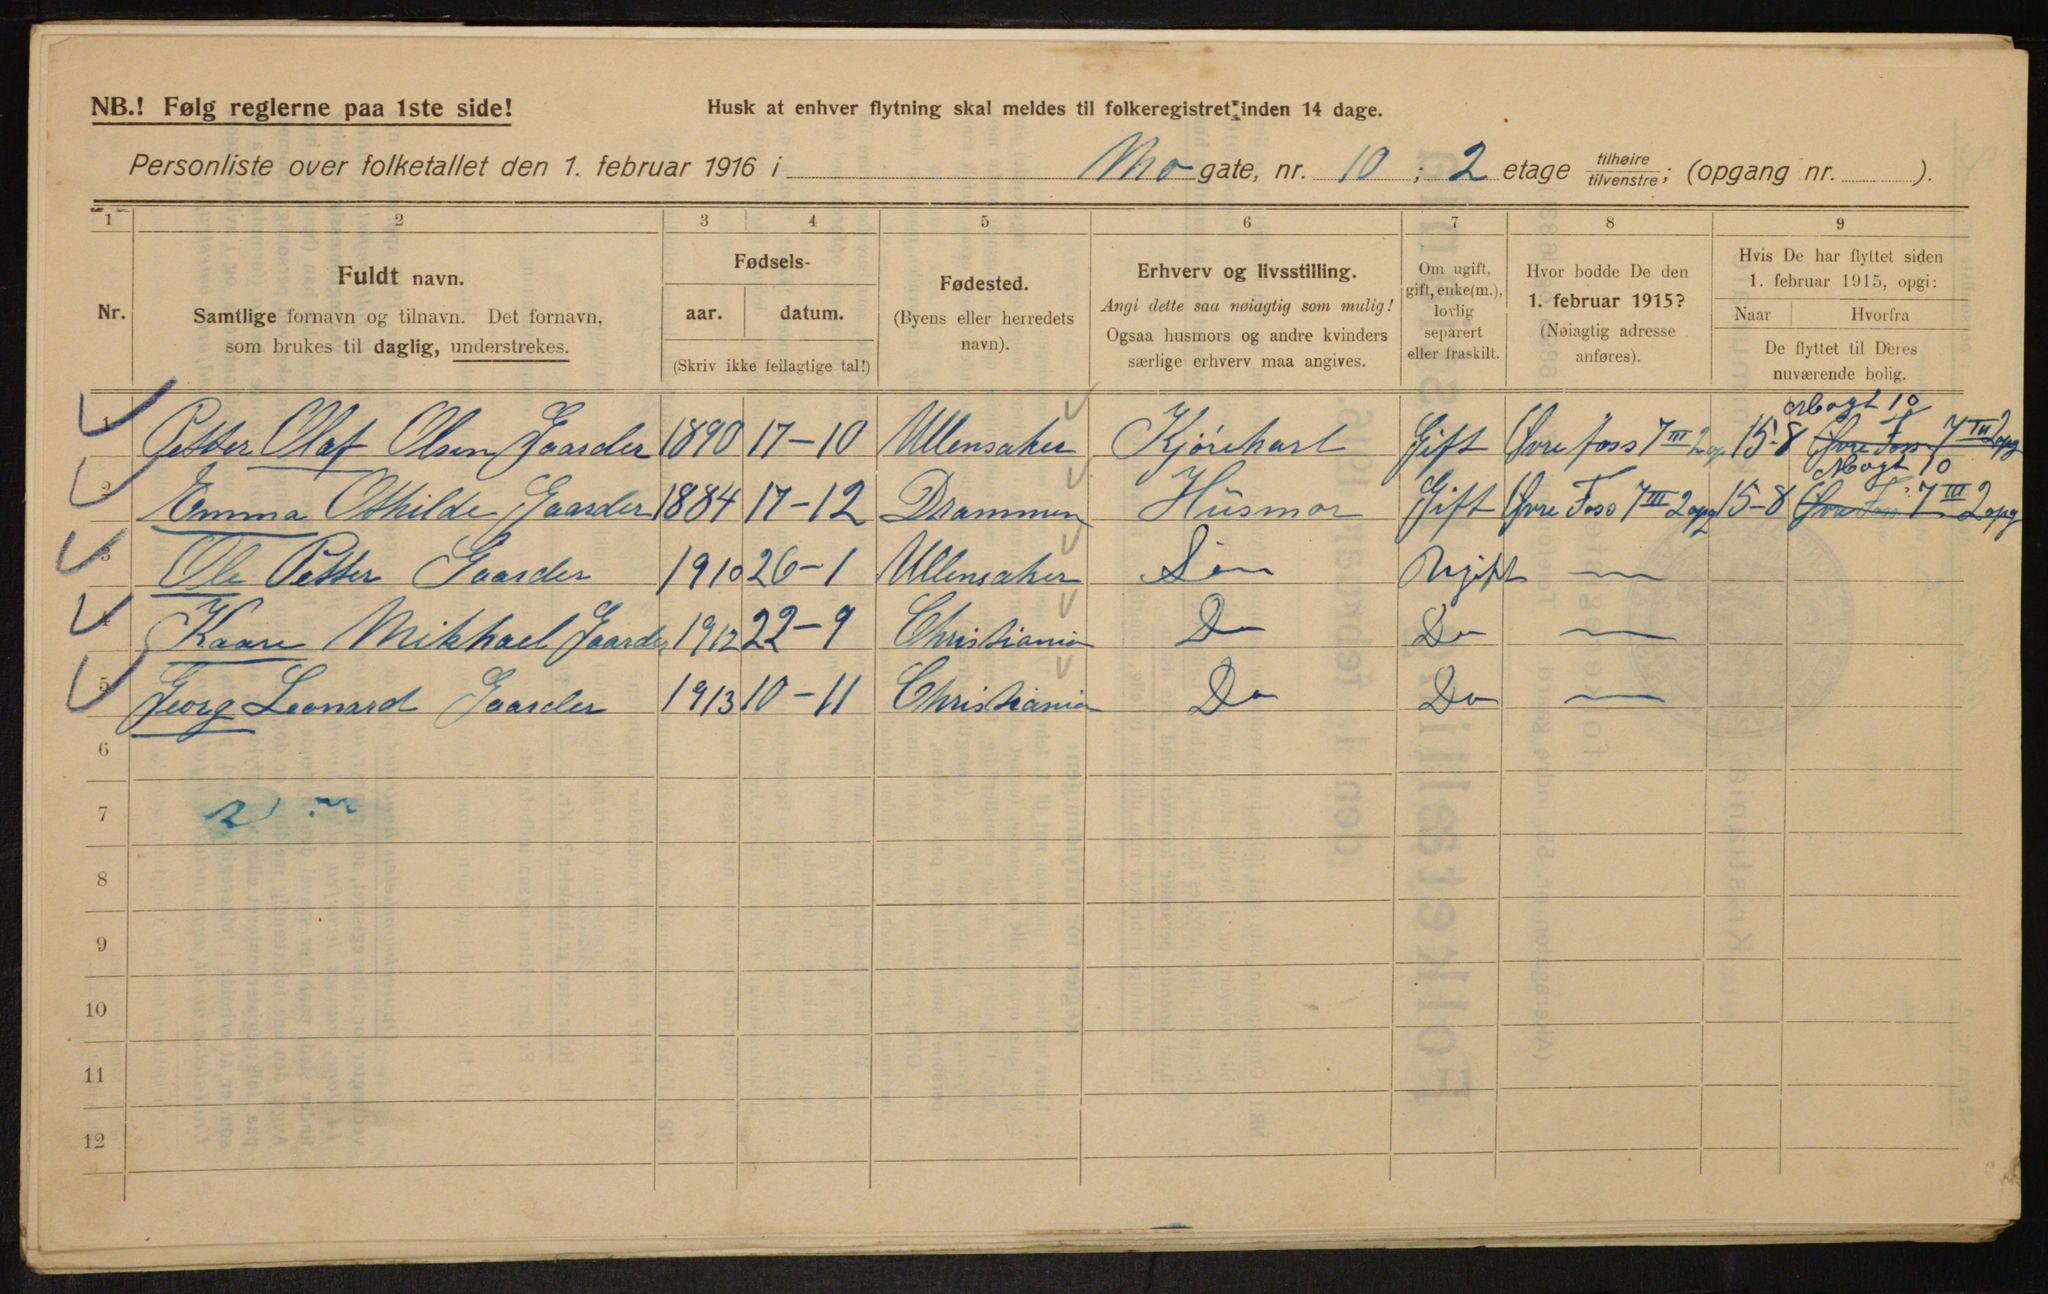 NB.! Følg reglerne paa 1ste side!
Husk at enhver flytning skal meldes til folkeregistret inden 14 dage.
Personliste over folketallet den 1. februar 1916 i Mogate, nr. 10; 2 etage tilhøire tilvenstre; (opgang nr. ).
1 2 3 4 5 6 7 8 9
Nr.
Fuldt navn.
Samtlige fornavn og tilnavn. Det fornavn,
som brukes til daglig, understrekes.
Fødsels-
aar. datum.
(Skriv ikke feilagtige tal!)
Fødested.
(Byens eller herredets
navn).
Erhverv og livsstilling.
Angi dette saa nøiagtig som mulig!
Ogsaa husmors og andre kvinders
særlige erhverv maa angives.
Om ugift,
gift, enke(m.),
lovlig
separert
eller fraskilt.
Hvor bodde De den
1. februar 1915?
(Nøiagtig adresse
anføres).
Hvis De har flyttet siden
1. februar 1915, opgi:
Naar Hvorfra
De flyttet til Deres
nuværende bolig.
Mogt 10
1 Petter Olaf Olsen Gaarder 1890 17-10 Ullensaker Kjørekarl Gift Øvre foss 7 III 2 op 15-8 Øvre Foss 7 III 2 opg
Mogt 10
2 Emma Othilde Gaarder 1884 17-12 Drammen Húsmor Gift Øvre Foss 7 III 2 opg 15-8 Øvre Foss 7 III 2 opg
3 Ole Petter Gaarder 1910 26-1 Ullensaker Søn Ugift —
4 Kaare Mikhael Gaarder 1912 22-9 Christiania Do Do —
5 Georg Leonard Gaarder 1913 10-11 Christiania Do Do —
6
7
8
9
10
11
12